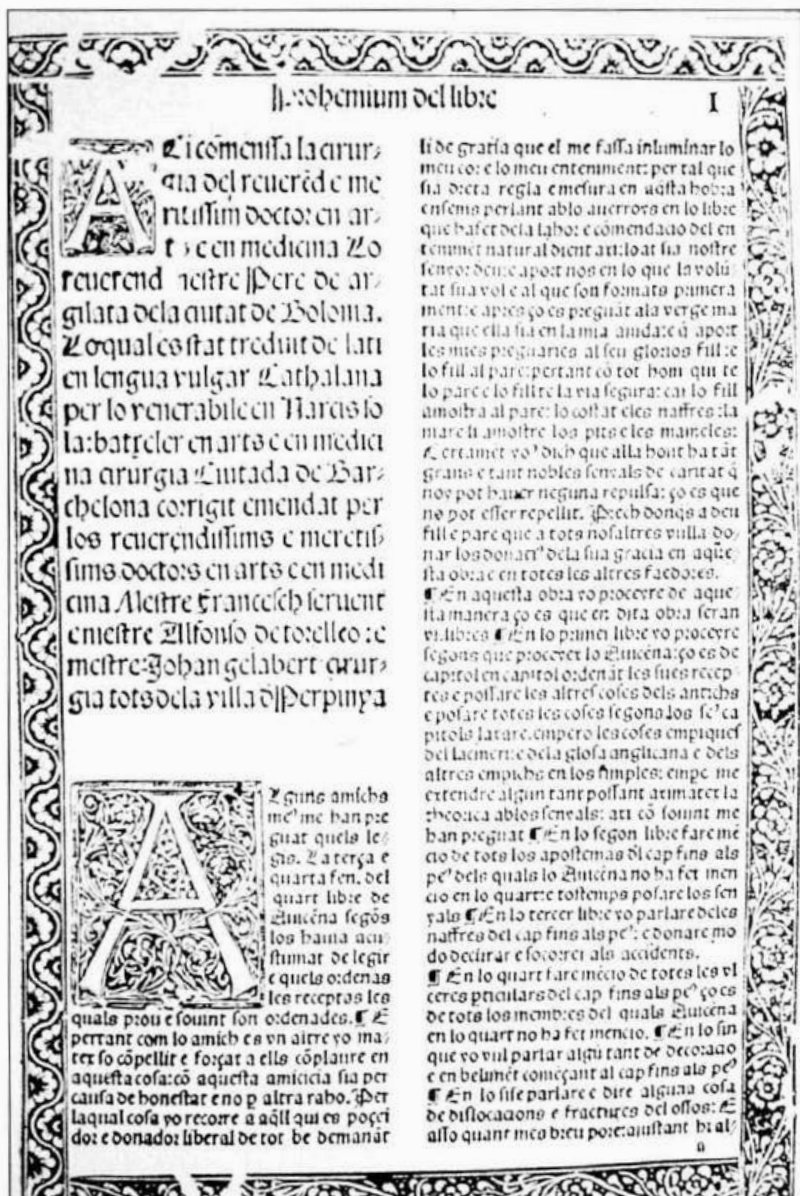 Prohemium del libre
I
Aci comensa la cirur⸗
gia del reuerẽd e me
ritissim doctor en ar⸗
ts e en medicina Lo
reuerend mestre Pere de ar⸗
gilata dela ciutat de Bolonia.
Lo qual es stat treduit de lati
en lengua vulgar Cathalana
per lo venerabile en Narcis so
la: batxeler en arts e en medici
na cirurgia Ciutada de Bar⸗
chelona corrigit emendat per
los reuerendissims e meretis⸗
sims doctors en arts e en medi
cina Mestre Francesch seruent
e mestre Alfonso de torelleo: e
mestre Johan gelabert cirur⸗
gia tots dela villa d̃ Perpinya
Alguns amichs
meꝰ me han pre
guat quels le⸗
gis. La terça e
quarta fen. del
quart libre de
Auicẽna segõs
los hauia acu⸗
stumat de legir
e quels ordenas
les receptas les
quals prou e souint son ordenades. ¶ E
pertant com lo amich es vn altre yo ma⸗
teix so cõpellit e forçat a ells cõplaure en
aquesta cosa: cõ aquesta amicicia sia per
causa de honestat e no p̱ altra raho. Per
laqual cosa yo recorre a aq̃ll qui es poçei
dor e donador liberal de tot be demanãt
li de gratia que el me fassa inluminar lo
meu cor e lo meu enteniment: per tal que
sia dreta regla e mesura en aq̃sta hobra
ensems perlant ablo auerroys en lo libre
que ha fet dela labor e comendacio del en
tenimẽt natural dient axi: loat sia nostre
senyor deu: e aport nos en lo que la volũ
tat sua vol e al que son formats primera
ment: e apres ço es preguãt ala verge ma
ria que ella sia en la mia aiuda: e q̃ aport
les mies preguaries al seu glorios fill: e
lo fill al pare: pertant cõ tot hom qui te
lo pare e lo fill te la via segura: car lo fill
amostra al pare: lo costat e les naffres: la
mare li amostre los pits e les mameles:
Certamẽt yoꝰ dich que alla hont ha tãt
grans e tant nobles senyals de caritat q̃
noy pot hauer neguna repulsa: ço es que
no pot esser repellit. Prech donqs a deu
fill e pare que a tots nosaltres vulla do⸗
nar los donatiꝰ dela sua gracia en aq̃ue⸗
sta obra e en totes les altres faedores.
¶ En aquesta obra yo proceyre de aque
sta manera ço es que en dita obra seran
vi. libres ¶ En lo primer libre yo proceyre
segons que proceyt lo Auicẽna: ço es de
capitol en capitol ordenãt les sues recep⸗
tes e possare les altres coses dels antichs
e posare totes les coses segons los seꝰ ca
pitols latare. empero les coses empiques
del lacmeri: e dela glosa anglicana e dels
altres empichs en los simples: empe me
extendre algun tant possant arimater la
theorica ablos senyals: axi cõ souint me
han preguat ¶ En lo segon libre fare mẽ
cio de tots los apostemas dl cap fins als
peꝰ dels quals lo Auicẽna no ha fet men
cio en lo quart: e tostemps posare los sen
yals ¶ En lo tercer libre yo parlare deles
naffres del cap fins als peꝰ: e donare mo
do de curar e socorrer als accidents.
¶ En lo quart fare mẽcio de totes les vl
ceres pticulars del cap fins als peꝰ ço es
de tots los membres del quals Auicẽna
en lo quart no ha fet mencio. ¶ En lo sin
que yo vul parlar algũ tant de decoracio
e en bellimẽt comeņçant al cap fins als peꝰ
¶ En lo sise parlare e dire alguna cosa
de dislocacions e fractures del ossos: E
asso quant mes breu pore: aiustant hi al⸗
a